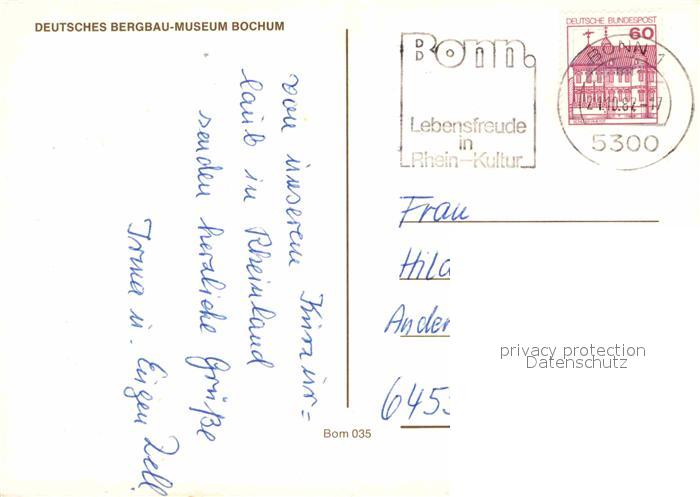 DEUTSCHES BERGBAU-MUSEUM BOCHUM
von unserem Kurzur=
laub in Rheinland
senden herzliche Grüße
Irma u. Eugen
Bonn.
Lebensfreude
in
Rhein-Kultur
DEUTSCHE BUNDESPOST
60
BONN 7
5300
Frau
Hild
Ander
645
privacy protection
Datenschutz
Bom 035